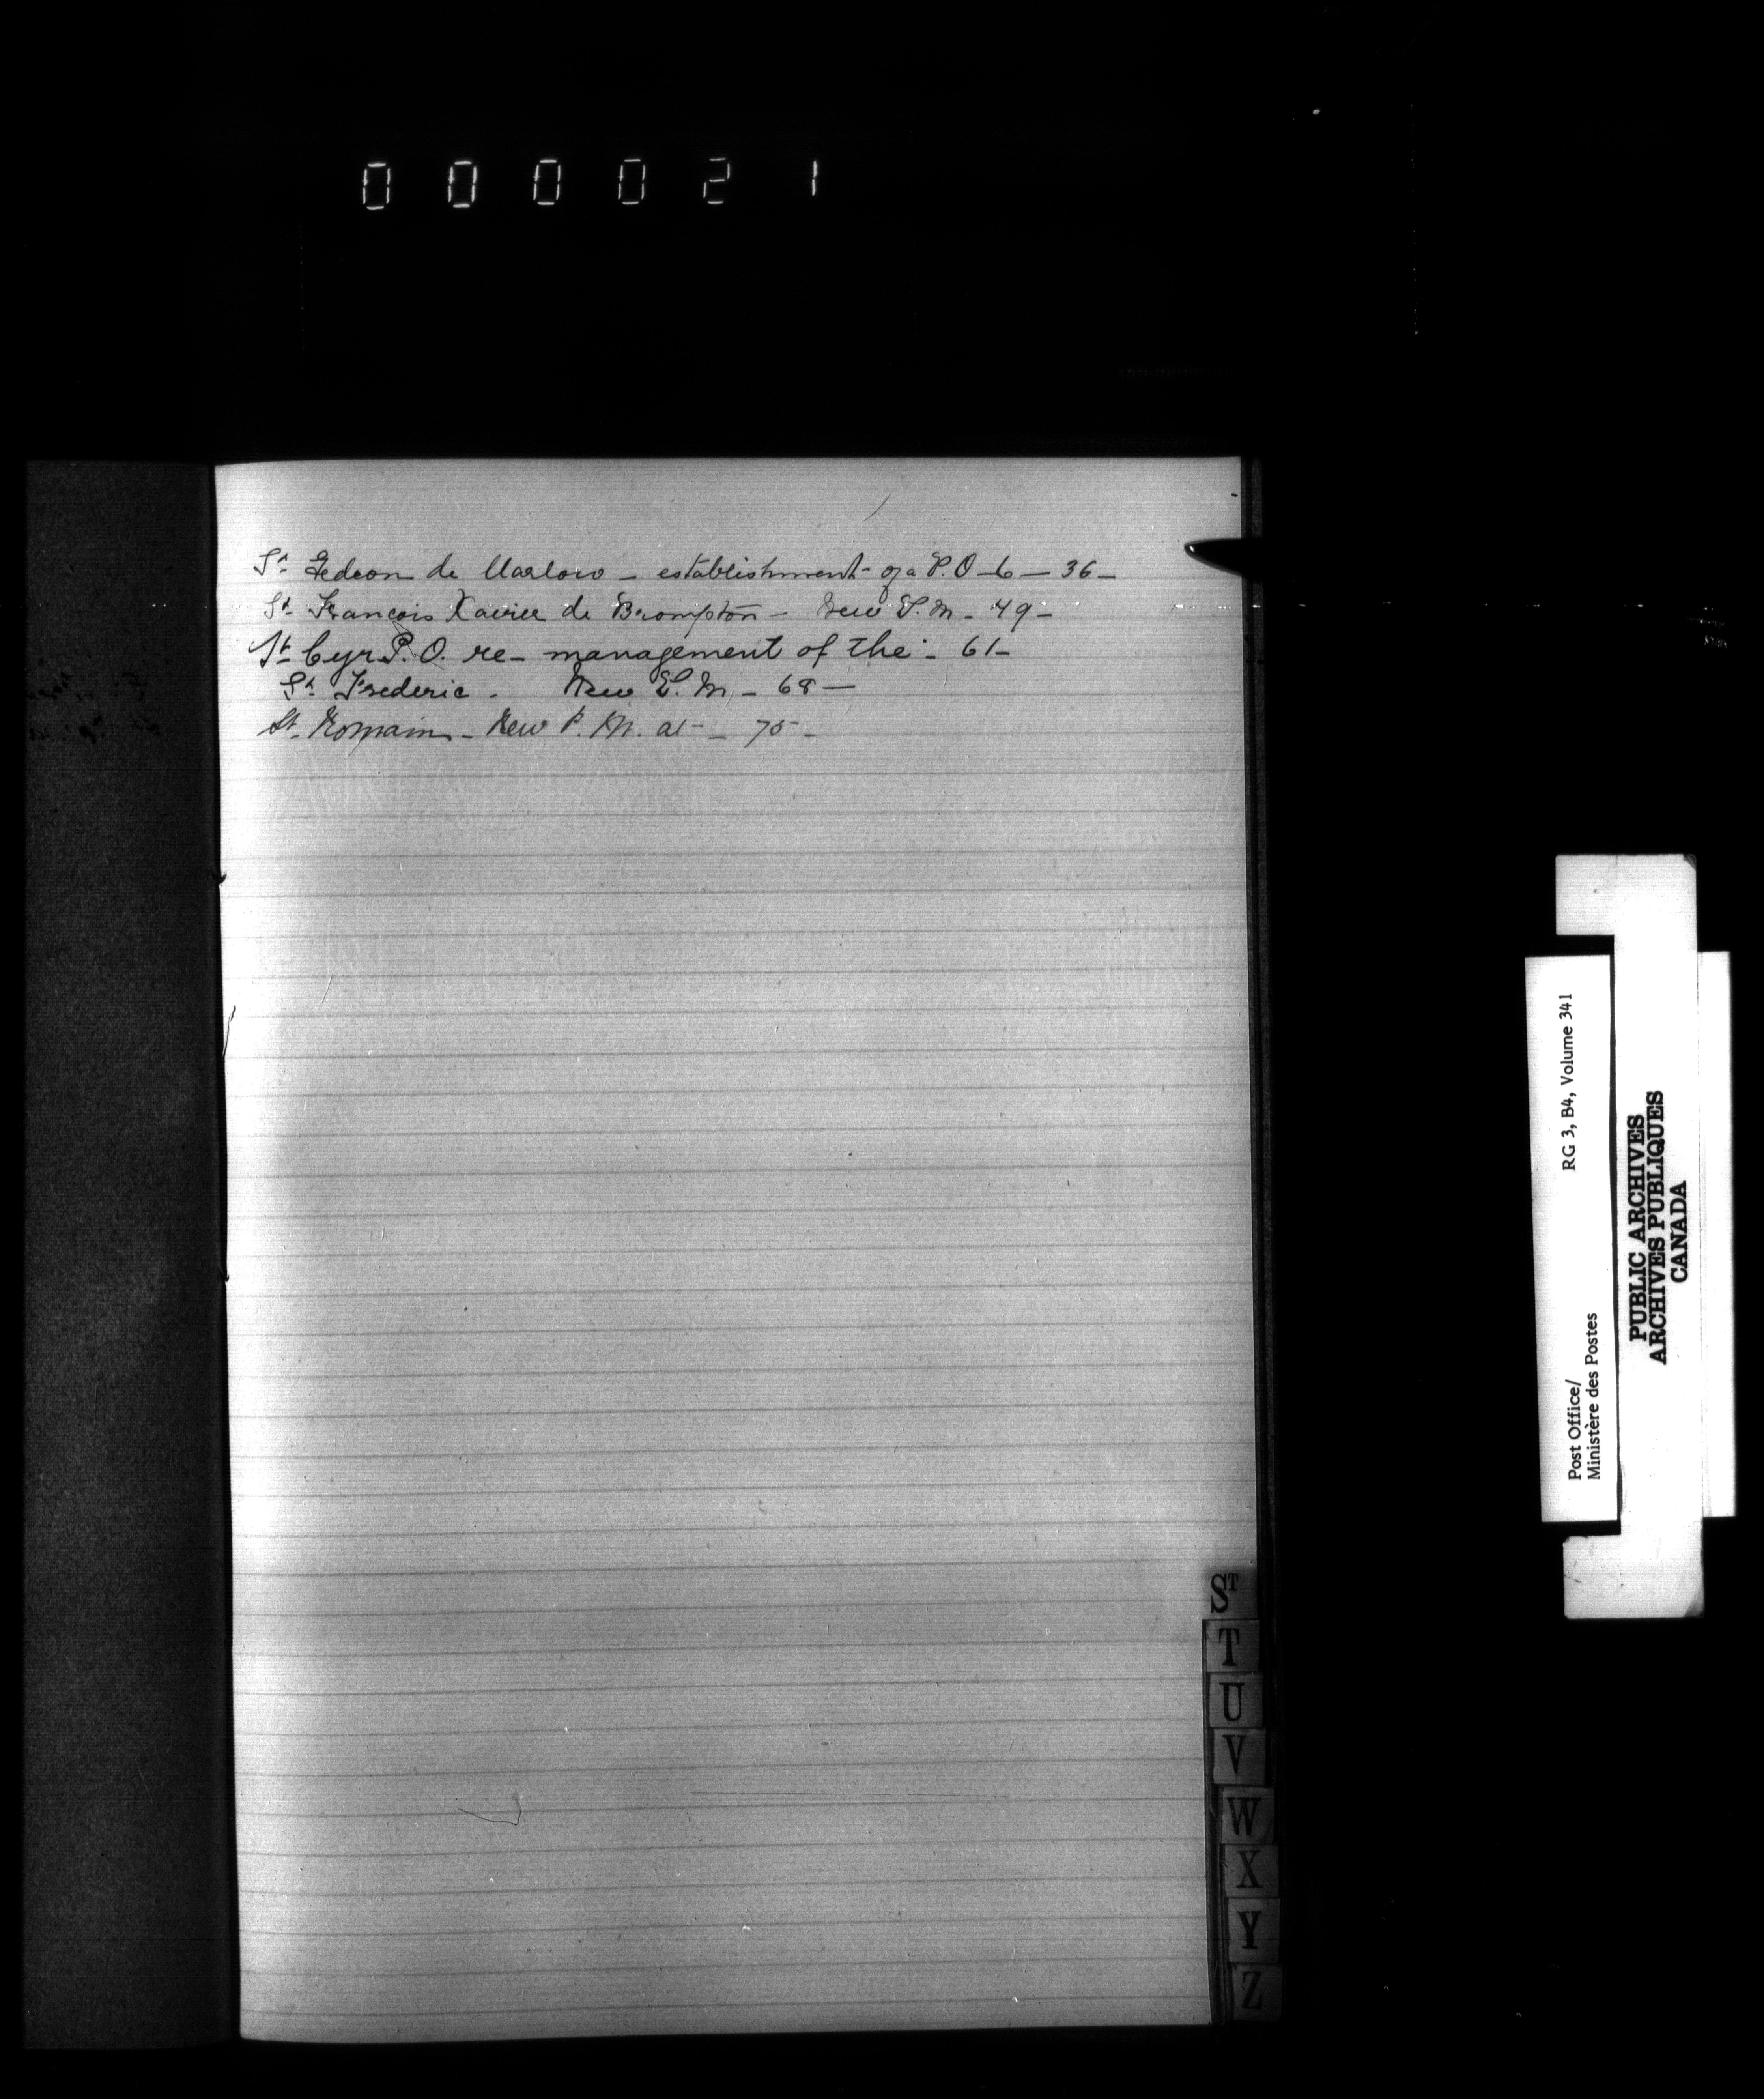 000021
St. Gedeon de Marlow - establishment of a P.O - 6 - 36 -
St. François Xavier de Brompton - New P.M. - 49 -
St. Cyr P.O. re- management of the - 61 -
St. Frederic - New P.M. - 68 -
St. Romain - New P.M. at - 75 -
ST
T
U
V
W
X
Y
Z
Post Office/ RG 3, B4, Volume 341
Ministère des Postes
PUBLIC ARCHIVES
ARCHIVES PUBLIQUES
CANADA